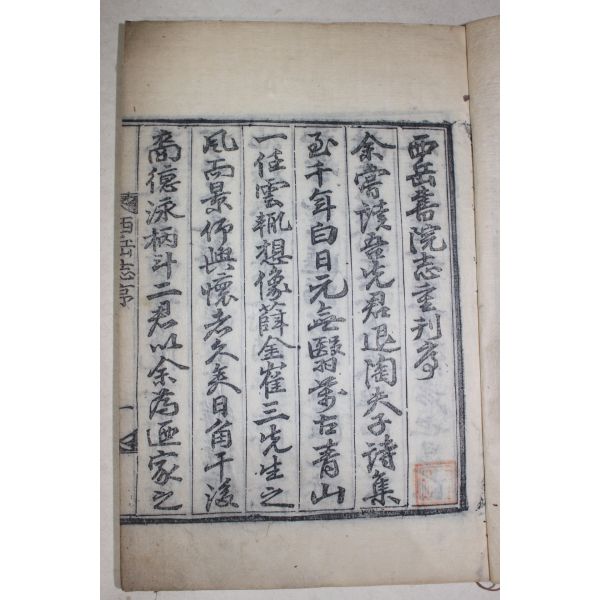 西岳書院志重刊序
余嘗讀吾先君退陶夫子詩集
至千年白日元無翳萬古青山
一佳雲輒想像薛金崔三先生之
風而景仰興懷者久矣日角干後
裔德泳柄斗二君以余為通家之
西岳志序
一